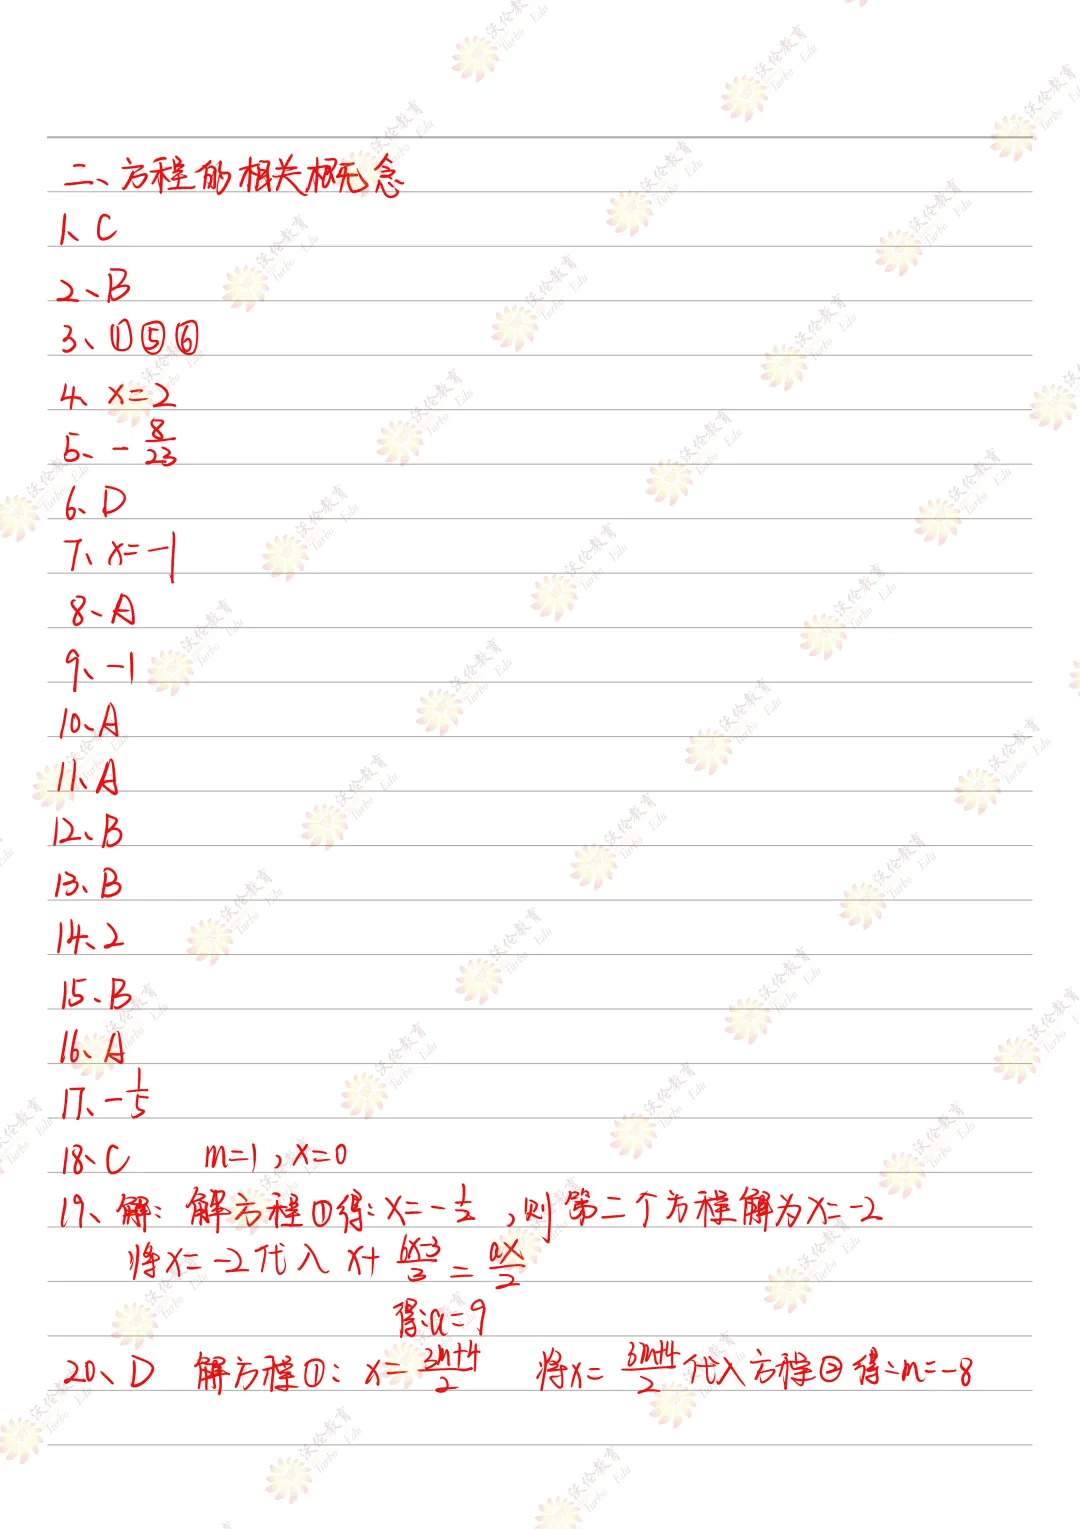 二、方程的相关概念
1、C
2、B
3、①⑤⑥
4、x=2
5、-8/23
6、D
7、x=-1
8、A
9、-1
10、A
11、A
12、B
13、B
14、2
15、B
16、A
17、-1/5
18、C m=1,x=0
19、解:解方程①得:x=-1/2,则第二个方程解为x=-2
将x=-2代入 x+(6x-3)/3=ax/2
得:a=9
20、D 解方程①:x=(3m+4)/2 将x=(3m+4)/2代入方程②得:m=-8
沃伦教育
Turbo Edu